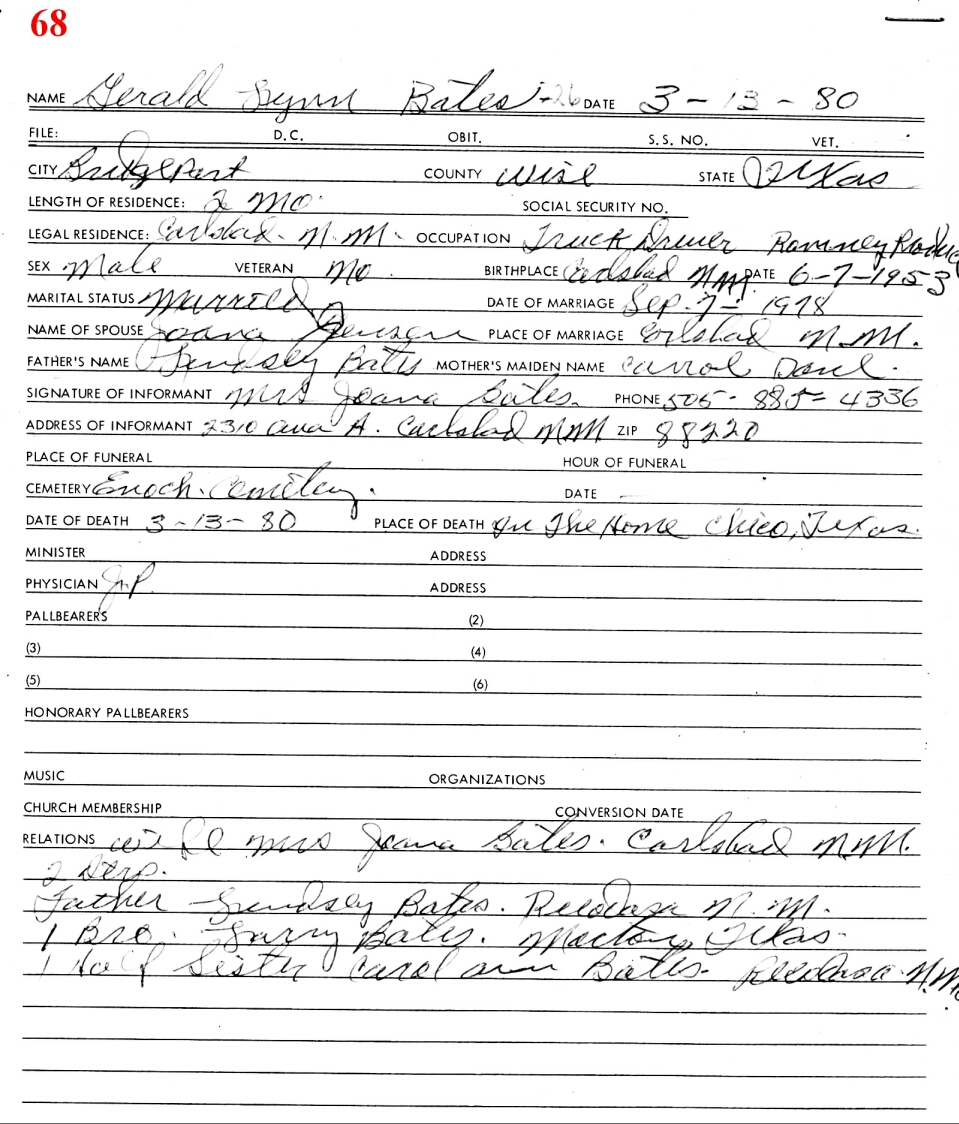 68
NAME Gerald Lynn Bates J-26 DATE 3-13-80
FILE: D.C. OBIT. S.S. NO. VET.
CITY Bridgeport COUNTY Wise STATE Texas
LENGTH OF RESIDENCE: 2 Mo. SOCIAL SECURITY NO.
LEGAL RESIDENCE: Carlsbad. N.M. OCCUPATION Truck Driver Romney
SEX Male VETERAN No BIRTHPLACE Carlsbad NM DATE 6-7-1953
MARITAL STATUS Married DATE OF MARRIAGE Sep. 7- 1978
NAME OF SPOUSE Joana PLACE OF MARRIAGE Carlsbad N.M.
FATHER'S NAME Lindsey Bates MOTHER'S MAIDEN NAME Carrol
SIGNATURE OF INFORMANT Mrs Joana Bates. PHONE 505-885-4336
ADDRESS OF INFORMANT 2310 A. Carlsbad NM ZIP 88220
PLACE OF FUNERAL HOUR OF FUNERAL
CEMETERY Enoch. Cemetery. DATE
DATE OF DEATH 3-13-80 PLACE OF DEATH In The Home Chico, Texas.
MINISTER ADDRESS
PHYSICIAN J.P. ADDRESS
PALLBEARERS (2)
(3) (4)
(5) (6)
HONORARY PALLBEARERS
MUSIC ORGANIZATIONS
CHURCH MEMBERSHIP CONVERSION DATE
RELATIONS wife Mrs Joana Bates. Carlsbad N.M.
2
Father Lindsey Bates. N.M.
1 Bro. Larry Bates. Texas.
1 Half Sister Carol ann Bates. N.M.